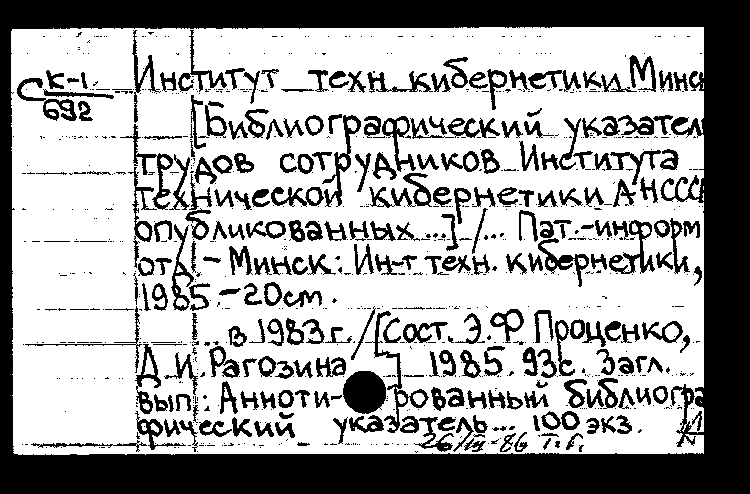 С К-1
692
Институт техн. кибернетики Минск
[Библиографический указатель
трудов сотрудников Института
технической кибернетики АНСССР
опубликованных ...] /... Пат.-информ
отд. - Минск: Ин-т техн. кибернетики,
1985. - 20см.
... в 1983г. / [Сост. Э.Ф Проценко,
Д.И. Рагозина ] 1985. 93с. Загл.
вып: Анноти- рованный библиогра
фический указатель... 100 экз.